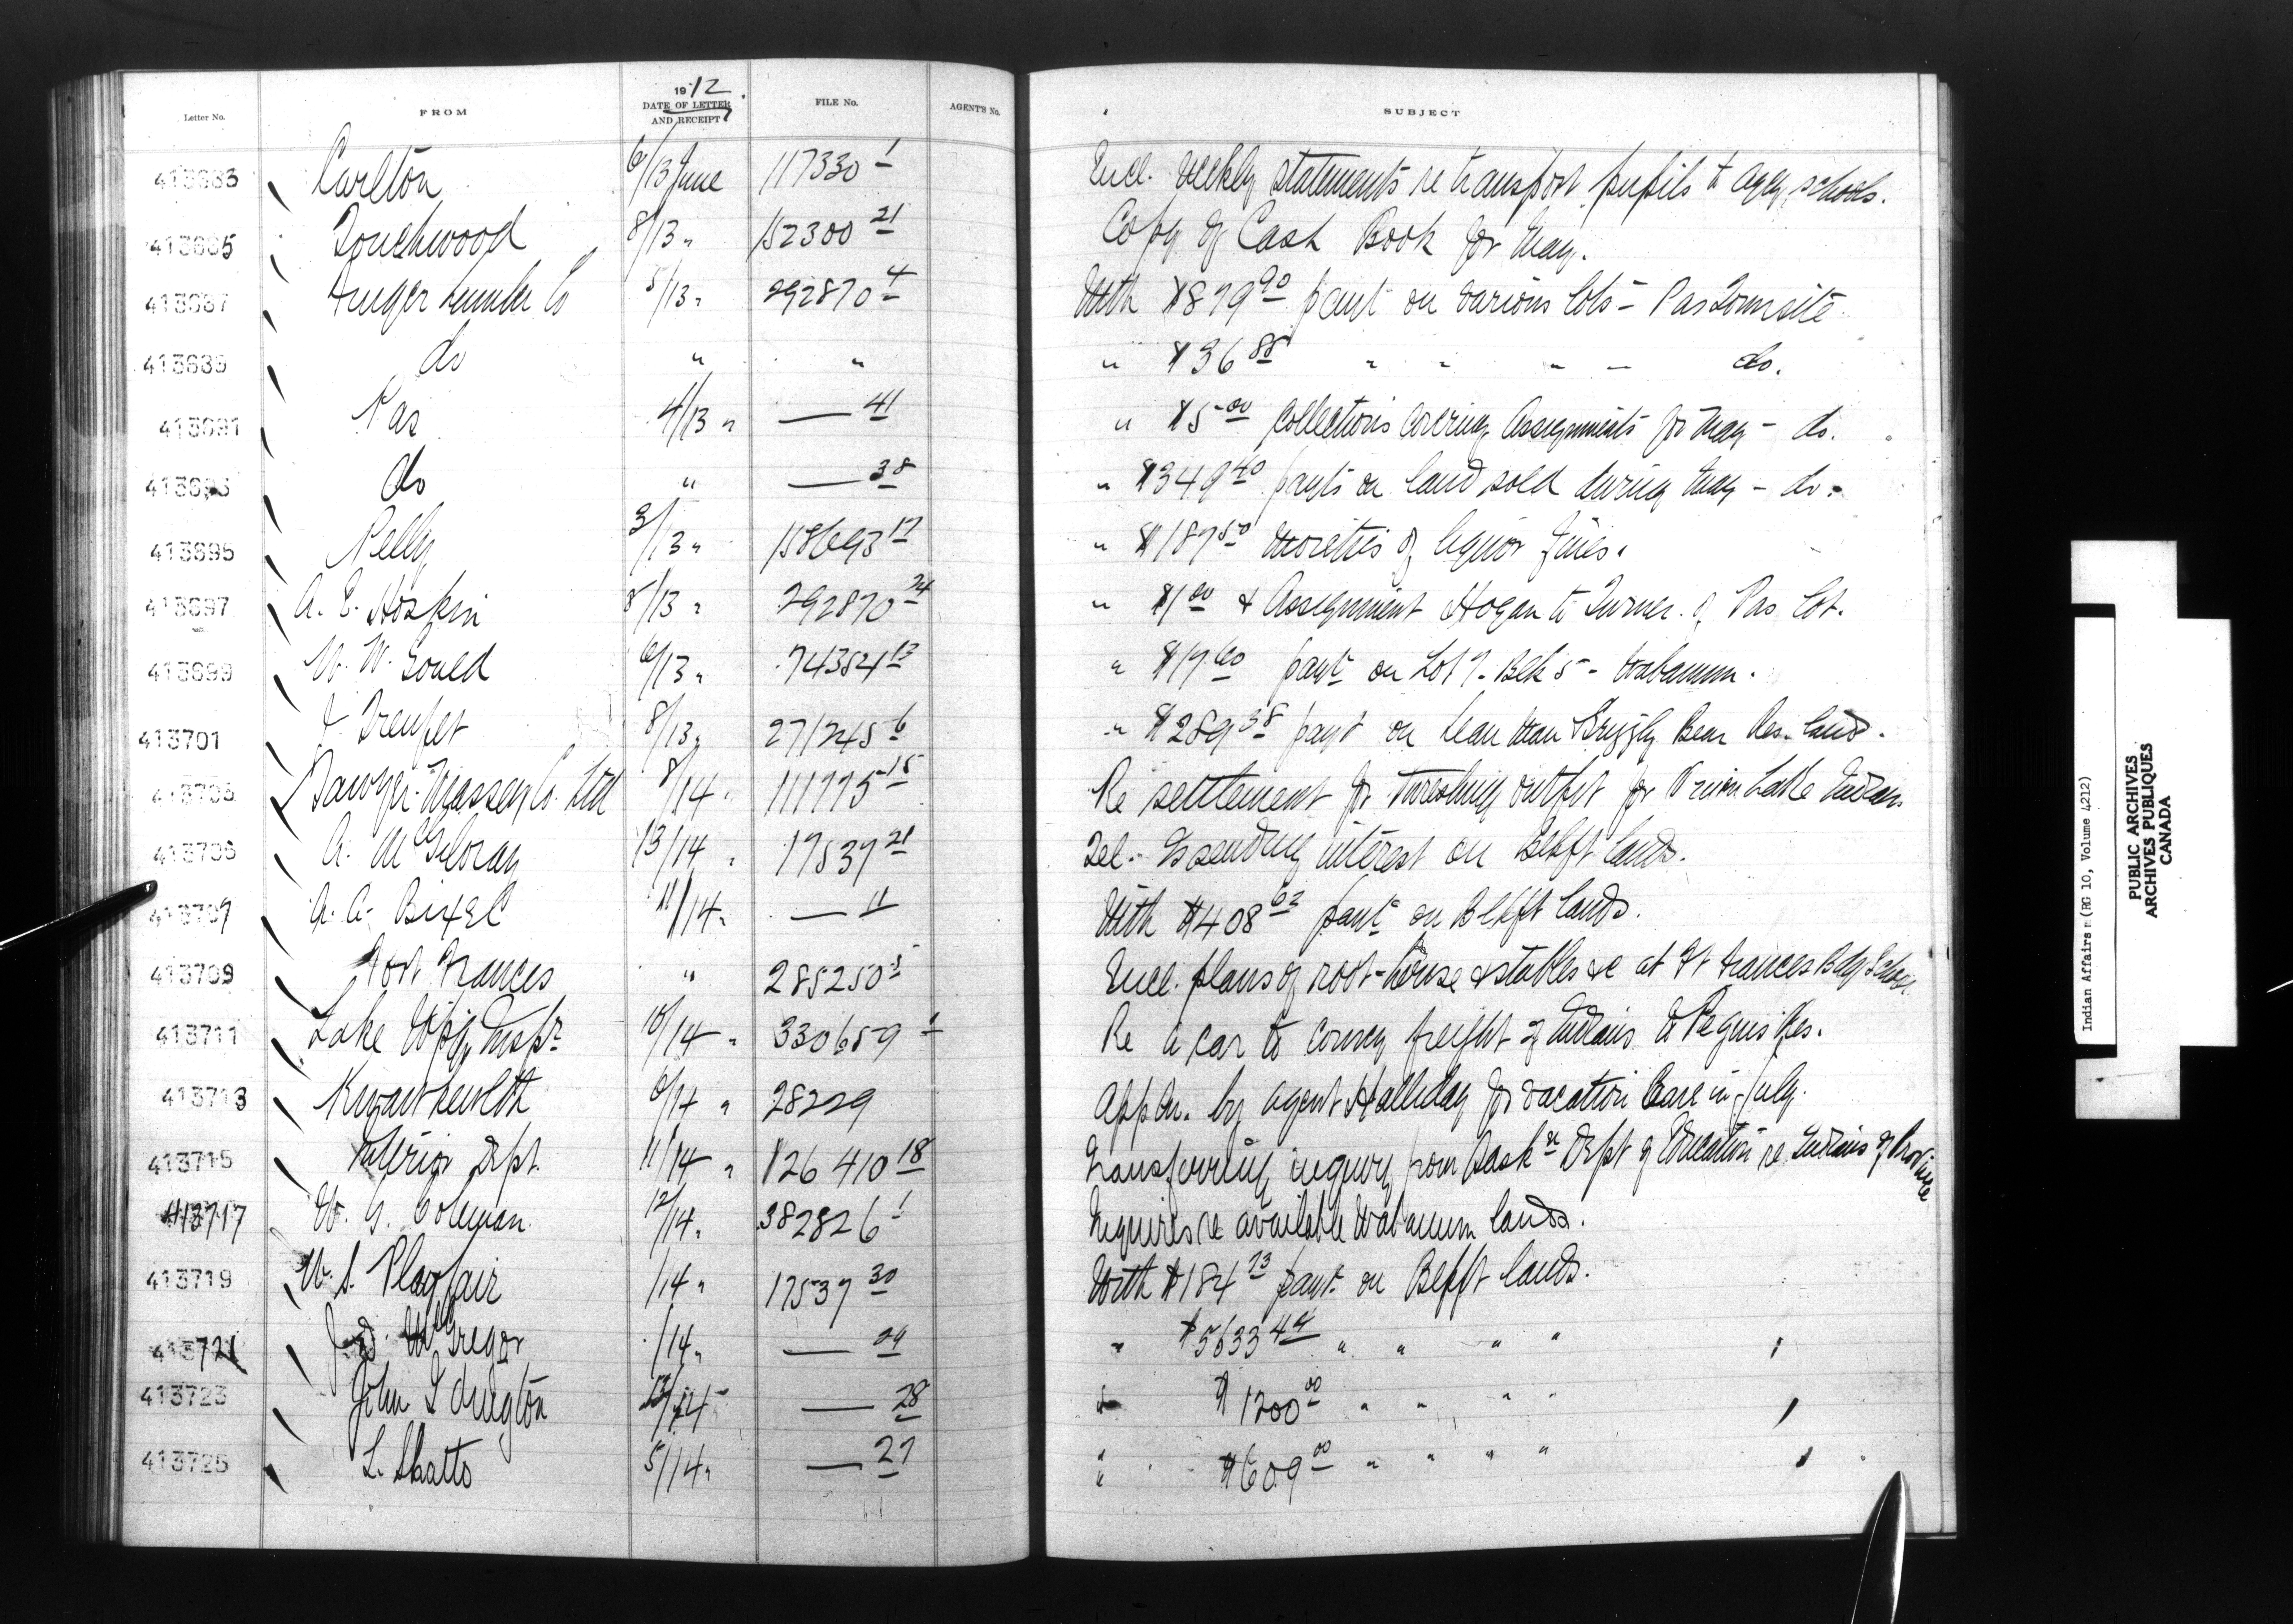 Letter No. FROM 1912. DATE OF LETTER AND RECEIPT FILE No. AGENT'S No. SUBJECT
413683 Carlton 6/13 June 117330 1 Encl. weekly statements re transport pupils to schools.
413685 Touchwood 8/13 " 152300 21 Copy of Cash Book for May.
413687 Finger Lumber Co 5/13 " 292870 4 With $879 90 paymt on various lots - Pas Townsite
do " " " $36 88 " " " " do.
413691 Pas 4/13 " — 41 " $5 00 collections covering Assignments for May - do.
do " — 38 " $349 40 paymts on land sold during May - do.
413695 Pelly 3/13 " 158693 17 " $187 50 moieties of liquor fines.
413697 A. E. Hoskin 8/13 " 292870 24 " $1 00 & Assignment Hogan to Turner of Pas lot.
413699 W. W. Gould 6/13 " 74384 13 " $17 60 paymt on Lot 7 - Blk 5 - Wabamun.
413701 8/13 " 271245 6 " $289 38 paymt on Lean Man Grizzly Bear Res. land.
Sawyer-Massey Co. Ltd 8/14 " 111775 15 Re settlement for threshing outfit for Lake Indians
A. McGilvray 13/14 " 17537 21 Tel. Is sending interest on Blkft lands.
413707 A. A. Bixel 11/14 " — 11 With $408 62 paymt on Blkft lands.
413709 Fort Frances " 285250 5 Encl. plans of root-house & stables &c at Ft Frances Bdg School
413711 Lake Wpg. Inspr 10/14 " 330659 Re a car to convey freight of Indians to Peguis Res.
413713 Kwawkewlth 6/14 " 28229 Appln. by Agent Halliday for vacation leave in July.
413715 Interior Dept. 11/14 " 126410 18 Transferring inquiry from Sask'n Dept of Education re Indians of Province
413717 W. G. Coleman 12/14 " 382826 1 Inquires re available Wabamun lands.
413719 W. S. Playfair /14 " 17537 30 With $184 73 paymt on Blkft lands.
413721 J. D. McGregor /14 " — 24 " $5633 44 " " " "
413723 John 13/14 — 28 " $1200 00 " " " "
413725 L. Shatto 5/14 " — 27 " $609 00 " " " "
Indian Affairs (RG 10, Volume 4212)
PUBLIC ARCHIVES
ARCHIVES PUBLIQUES
CANADA